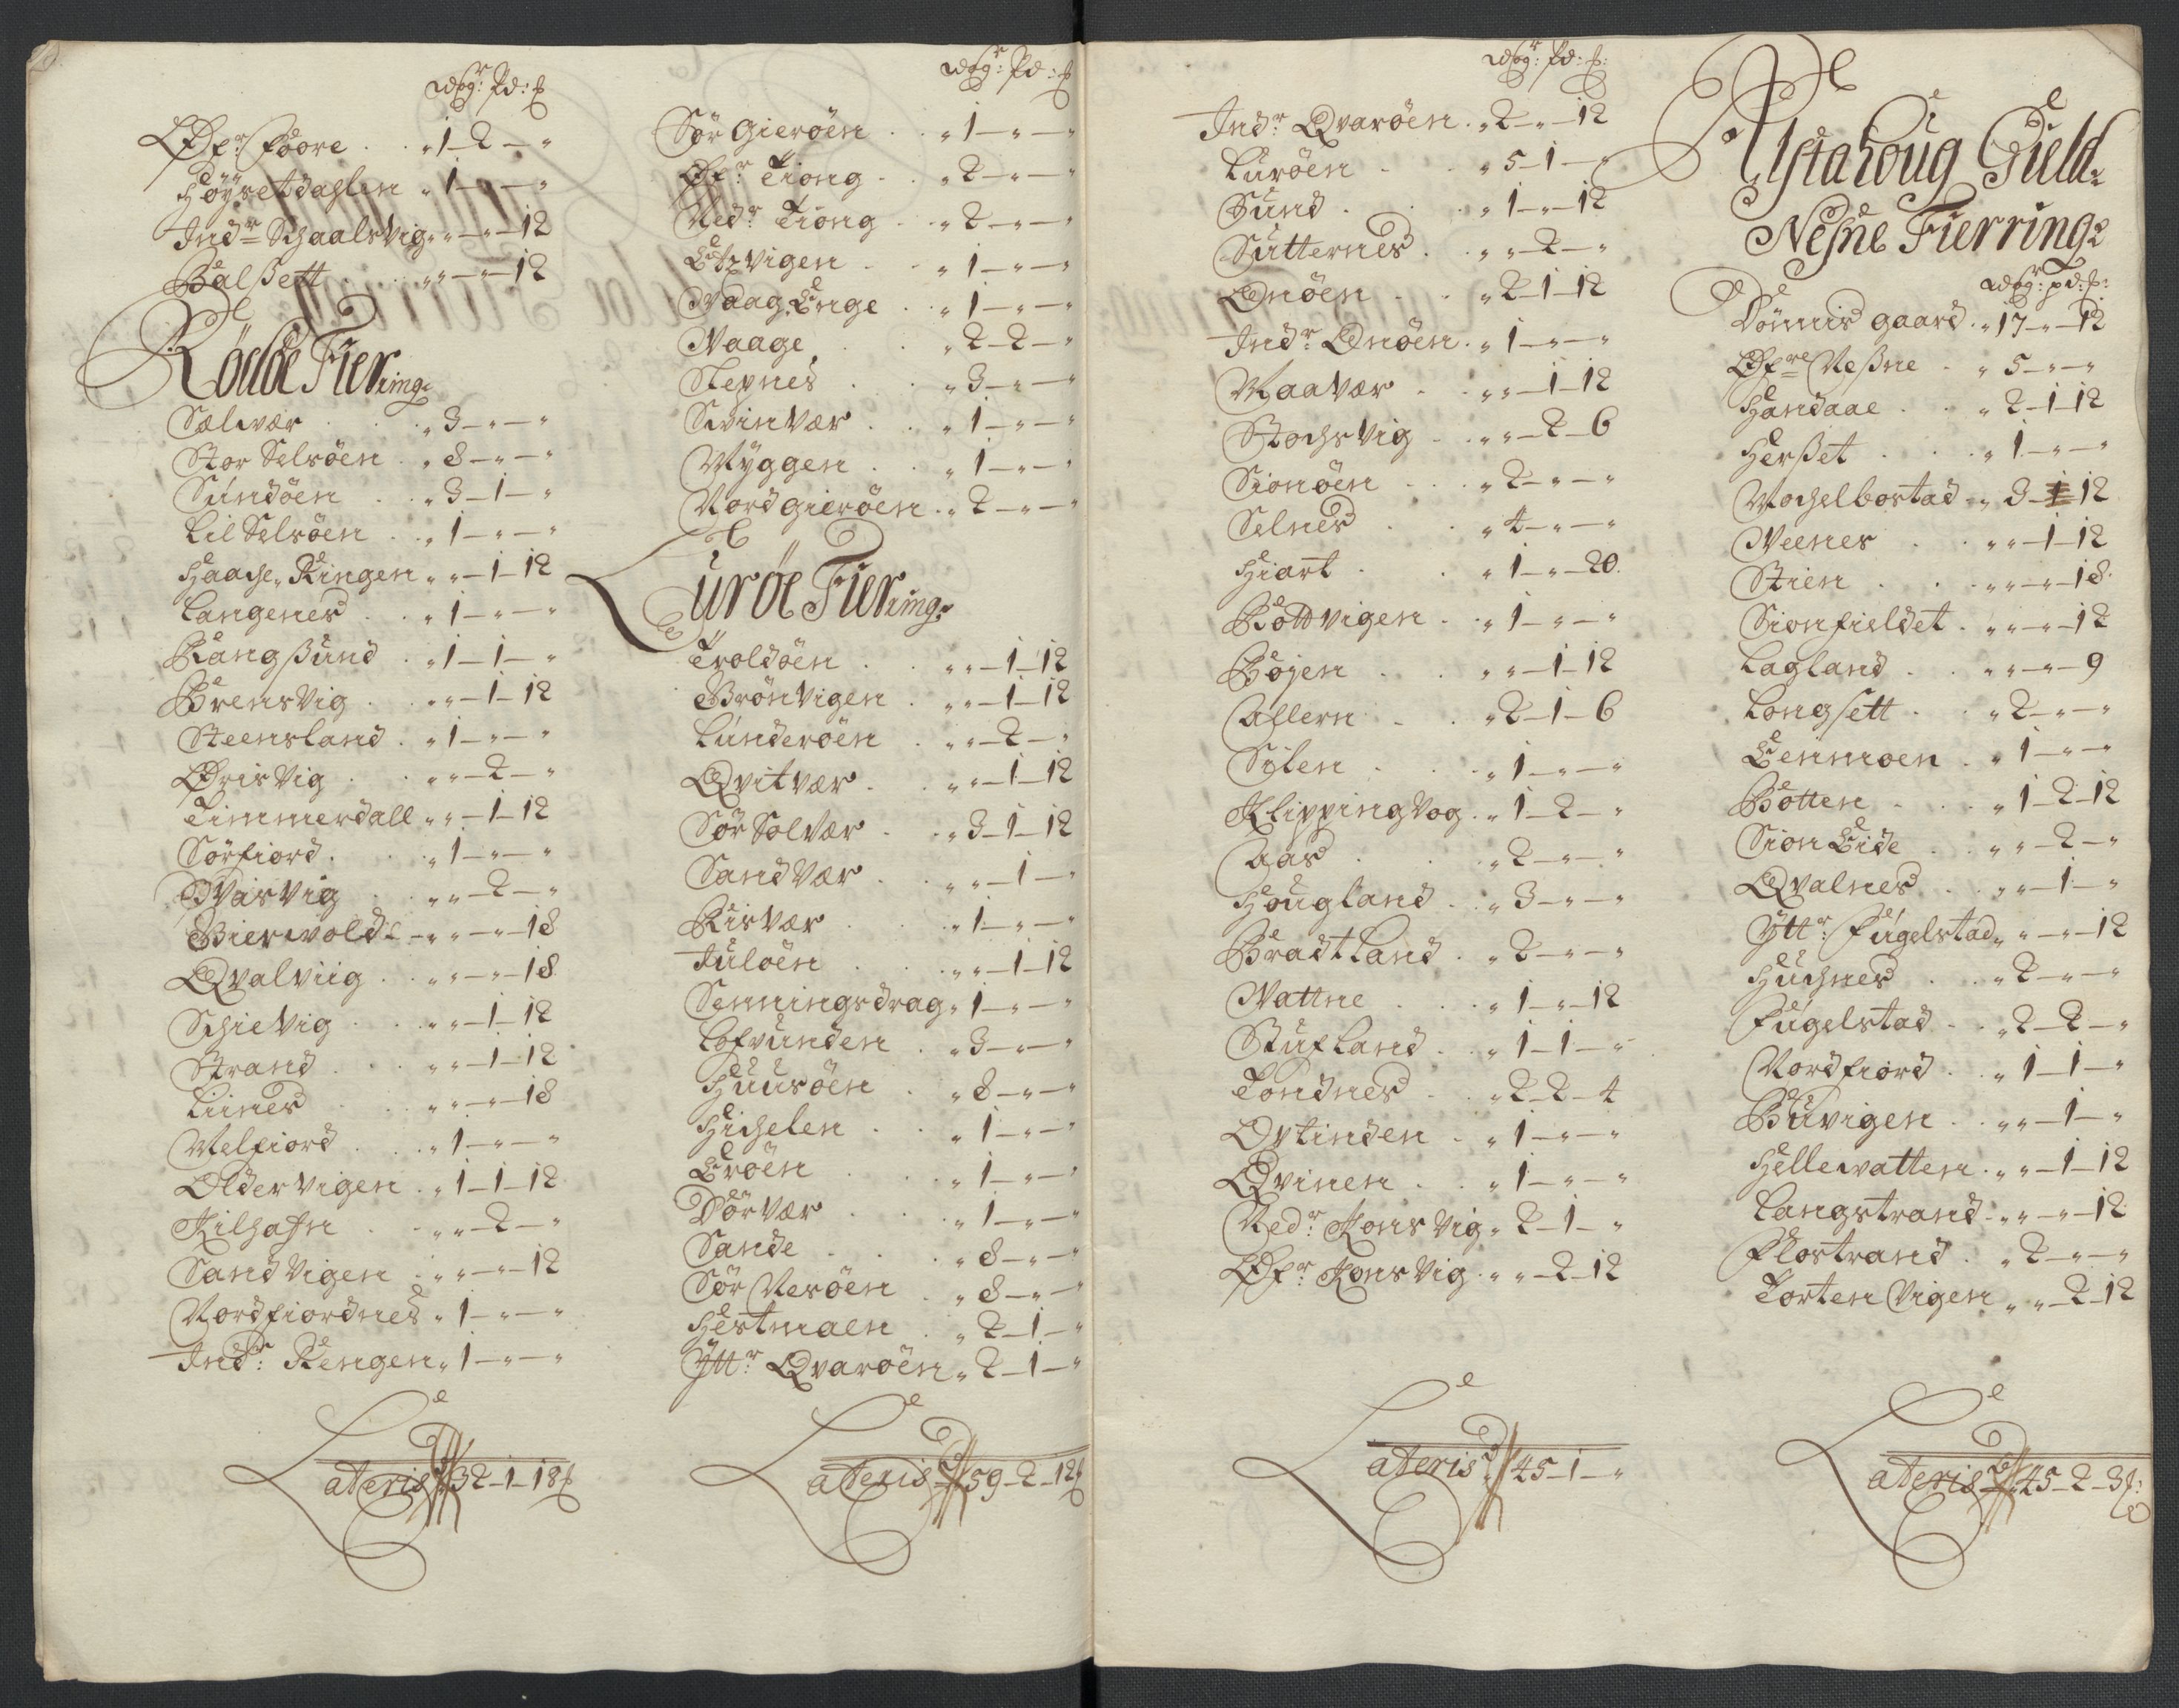 wogr: pd: ℔
Øfr: Føore . . „ 1–2–„
Høÿsetdahlen „ 1–„–„
Indr Schaalsvig „ „–„–12
Balßett . . „ „–„–12
Rödöe Fiering:
Sælvær . . „ 3–„–„
Stor Selsöen . „ 8–„–„
Sundöen . . „ 3–1–„
Lil Selsöen . . „ 1–„–„
Haache Ringen „ „–1–12
Langenes . . „ 1–„–„
Rangßund . „ 1–1–„
Brensvig . . „ „–1–12
Steensland . „ 1–„–„
Øris Vig . . „ „–2–„
Timmerdall „ „–1–12
Sörfiord . . „ 1–„–„
Qvarsvig . . „ „–2–„
Bierwold „ „–„–18
Qvalviig . . „ „–„–18
Schievig . . „ „–1–12
Strand . . „ „–1–12
Liines . . „ „–„–18
Melfiord . . „ 1–„–„
Oldervigen . „ 1–1–12
Kilhafn . . „ „–2–„
Sandvigen . „ „–„–12
Nordfiordnes „ 1–„–„
Indr: Rengen „ 1–„–„
Lateris 32–1–18 ℔
wogr: pd: ℔
Sör Gieröen . . „ 1–„–„
Øfr: Tiong . . „ 2–„–„
Nedr Tiong . . „ 2–„–„
Vaag Enge . „ 1–„–„
Vaage . . „ 2–2–„
Stepnes . . „ 3–„–„
Svinvær . . „ 1–„–„
Myggen . . „ 1–„–„
Nord Gieröen . „ 2–„–„
Luröe Fiering:
Troldöen . . „ „–1–12
Brönvigen . „ „–1–12
Lunderöen . „ „–2–„
Qvitvær . . „ „–1–12
Sör Solvær . „ 3–1–12
Sandvær . . „ „–1–„
Risvær . . „ 1–„–„
Juloen . . „ „–1–12
Senningsdrag „ 1–„–„
Lofvunden . „ 3–„–„
Huusöen . „ 8–„–„
Hichelen . . „ 1–„–„
Eröen . . „ 1–„–„
Dörvær . . „ 1–„–„
Sande . . „ 8–„–„
Sör Nesöen . „ 8–„–„
Hestmaen . „ 2–1–„
Ÿttr Qvaröen „ 2–1–„
Lateris 59–2–12 ℔
wogr: pd: ℔:
Indr: Qvaröen . „ 2–„–12
Luröen . . „ 5–1–„
Sund . . „ 1–„–12
Sutternes . „ „–2–„
Onöen . . „ 2–1–12
Indr: Onöen . „ 1–„–„
Maavær . . „ „–1–12
Stochsvig . „ „–2–6
Sionöen . . „ 2–„–„
Selnes . . „ 4–„–„
Hiart . . „ 1–„–20
Bottvigen . „ 1–„–„
Böjen . . „ „–1–12
Allern . . „ 2–1–6
Silen . . „ 1–„–„
Klippingvog . „ 1–2–„
Aas . . „ 2–„–„
Hougland . „ 3–„–„
Bradtland . „ 2–„–„
Vattne . . „ 1–„–12
Stufland . „ 1–1–„
Tondnes . „ 2–2–4
Qvtinden . „ 1–„–„
Qvinen . . „ 1–„–„
Nedr: Konsvig „ 2–1–„
Øfr Konsvig . „ „–2–12
Lateris 45–1–„
Alstahoug Guld:
Nesne Fierring:
wogr: pd: ℔:
Dönnis gaard . „ 17–„–12
Øfre Neßne . „ 5–„–„
Handaae . . „ 2–1–12
Herßet . . „ 1–„–„
Mochelbostad „ 3–1–12
Veenes . . „ „–1–12
Stien . . „ „–„–18
Sionfieldet . „ „–„–12
Lagland . . „ „–„–9
Longsett . . „ 2–„–„
Lenmoen . „ 1–„–„
Botten . . „ 1–2–12
Sion Eide . . „ „–2–„
Qvalnes . . „ „–1–„
Ÿttr: Fugelstad „ „–„–12
Huchnes . . „ 2–„–„
Fugelstad . . „ 2–2–„
Nordfiord . „ 1–1–„
Buvigen . . „ „–1–„
Hellewatten . „ „–1–12
Langstrand . „ „–„–12
Flostrand . „ 2–„–„
Torten Vigen „ „–2–12
Lateris 45–2–3 ℔: